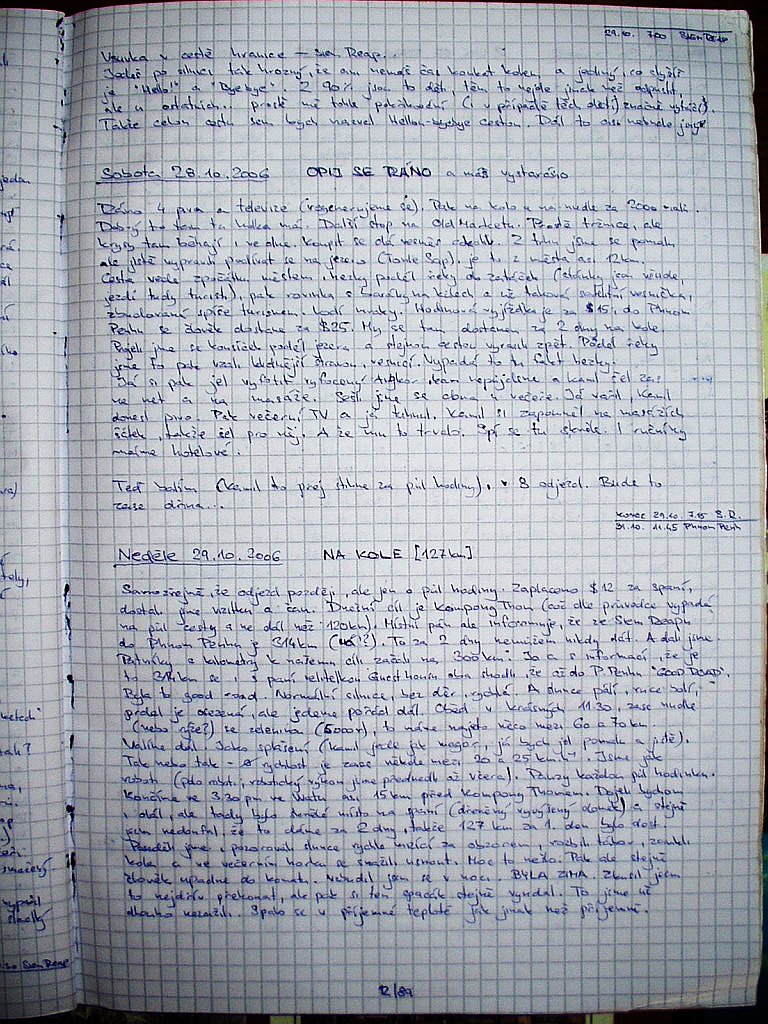 29.10. 7.00 SIEM REAP
Vsuvka v cestě hranice – Siem Reap.
Jedeš po silnici tak hrozný, že ani nemáš čas koukat kolem, a jediný, co slyšíš
je "Hello!" a "Bye bye". Z 90% jsou to děti, těm to nejde jinak než odpustit,
ale u ostatních... prostě mě tohle pokřikování (i v případě těch dětí) značně vytáčí.
Takže celou cestu sem bych nazval Hellou-byebye cestou. Dál to asi nebude jiný.
Sobota 28.10.2006 OPIJ SE RÁNO a máš vystaráno
Ráno 4 piva a televize (regenerujeme se). Pak na kolo a na nudle za 2000 rialů.
Dobrý to tam ta holka má. Další stop na Old Marketu. Prostě tržnice, ale
krysy tam běhají i ve dne. Koupit se dá vesměs cokoli. Z toho jsme se pomalu
ale jistě vypravili podívat se na jezero (Tonle Sap), je to z města asi 12km.
Cesta vede zpočátku městem, hezky podél řeky do zatáček (stánky jsou všude,
jezdí tudy turisti), pak rovinka s baráky na kůlech a už taková satelitní vesnička,
zbudovaná spíše turismem. Lodí mraky. Hodinová vyjížďka je za $15, do Phnom
Penhu se člověk dostane za $25. My se tam dostanem za 2 dny na kole.
Projeli jme se kousíček podél jezera a stejnou cestou vyrazili zpět. Podél řeky
jsme to pak vzali klidnější stranou, vesnicí. Vypadá to tu fakt hezky.
Já si pak jel vyfotit vyfocený Angkor, kam nepůjdeme a Kamil šel zas
na net a na masáže. Sešli jsme se oba u večeře. Já vařil, Kamil
donesl pivo. Pak večerní TV a já tuhnul. Kamil si zapomněl na masážích
šátek, takže šel pro něj. A že mu to trvalo. Spí se tu skvěle. I ručníky
máme hotelové.
Teď balím (Kamil to prej stihne za půl hodiny), v 8 odjezd. Bude to
zase dřina...
konec 29.10. 7.15 S.R.
31.10. 11.45 Phnom Penh
Neděle 29.10.2006 NA KOLE [127km]
Samozřejmě, že odjezd později, ale jen o půl hodiny. Zaplaceno $12 za spaní,
dostali jsme vizitku a čau. Dnešní cíl je Kompong Thom (což dle průvodce vypadá
na půl cesty a ne dál než 120km). Místní pán ale informuje, že ze Siem Reapu
do Phnom Penhu je 314km. To za 2 dny nemůžem nikdy dát. A dál jsme.
Patníky s kilometry k našemu cíli začali na 300km. Jo a s informací, že je
to 314km se i s paní ředitelkou Guest Housu oba shodli, že až do P. Penhu "GOOD ROAD".
Byla to good road. Normální silnice, bez děr, rychlá. A slunce pálí, ruce bolí,
prdel je otlačená, ale jedeme pořád dál. Oběd v krásných 11.30, zase nudle
(nebo rýže?) se zeleninou (5000r), to máme najeto něco mezi 60 a 70 km.
Valíme dál. Jako splašení (Kamil jede jak magor, já bych jel pomalu a jistě).
Tak nebo tak – rychlost je zase někde mezi 20 a 25 km.h⁻¹. Jsme jak
roboti (pdo robti, robotický výkon jsme předvedli až včera). Pauzy každou půl hodinku.
Končíme ve 3.30 pm ve Watu asi 15km před Kompong Thomem. Dojeli bychom
i dál, ale tady bylo skvělé místo na spaní (dřevěný vyvýšený domek) a stejně
jsem nedoufal, že to dáme za 2 dny, takže 127 km za 1. den bylo dost.
Poseděli jsme, pozorovali slunce rychle mizící za obzorem, rozbili tábor, zamkli
kola a ve večerním horku se snažili usnout. Moc to nešlo. Pak ale stejně
člověk upadne do komatu. Vzbudil jsem se v noci. BYLA ZIMA. Zkusil jsem
to nejdřív překonat, ale pak si ten spacák stejně vyndal. To jsme už
dlouho nezažili. Spalo se v příjemné teplotě jak jinak než příjemně.
12/89